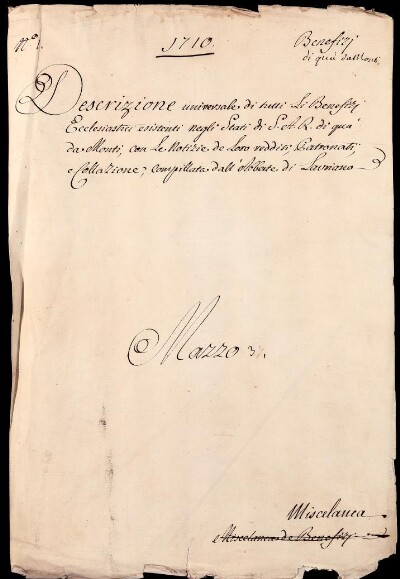 N.º 1.
1710.
Benefizj
di quà da Monti
Descrizione universale di tutti Li Benefizj
Ecclesiastici esistenti negli Stati di S.A.R. di quà
da Monti, con Le Notizie de loro redditi, Patronati,
e Collazione, compillata dall'Abbate di
Mazzo 3.
Miscelanea
e Miscelanea de Benefizj